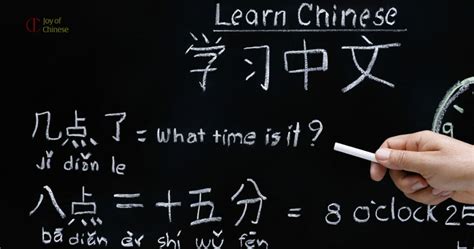 Joy of
Chinese
Learn Chinese
学习中文
几点了 = What time is it ?
jǐ diǎn le
八点二十五分 = 8 o'clock 25
bā diǎn èr shí wǔ fēn
9